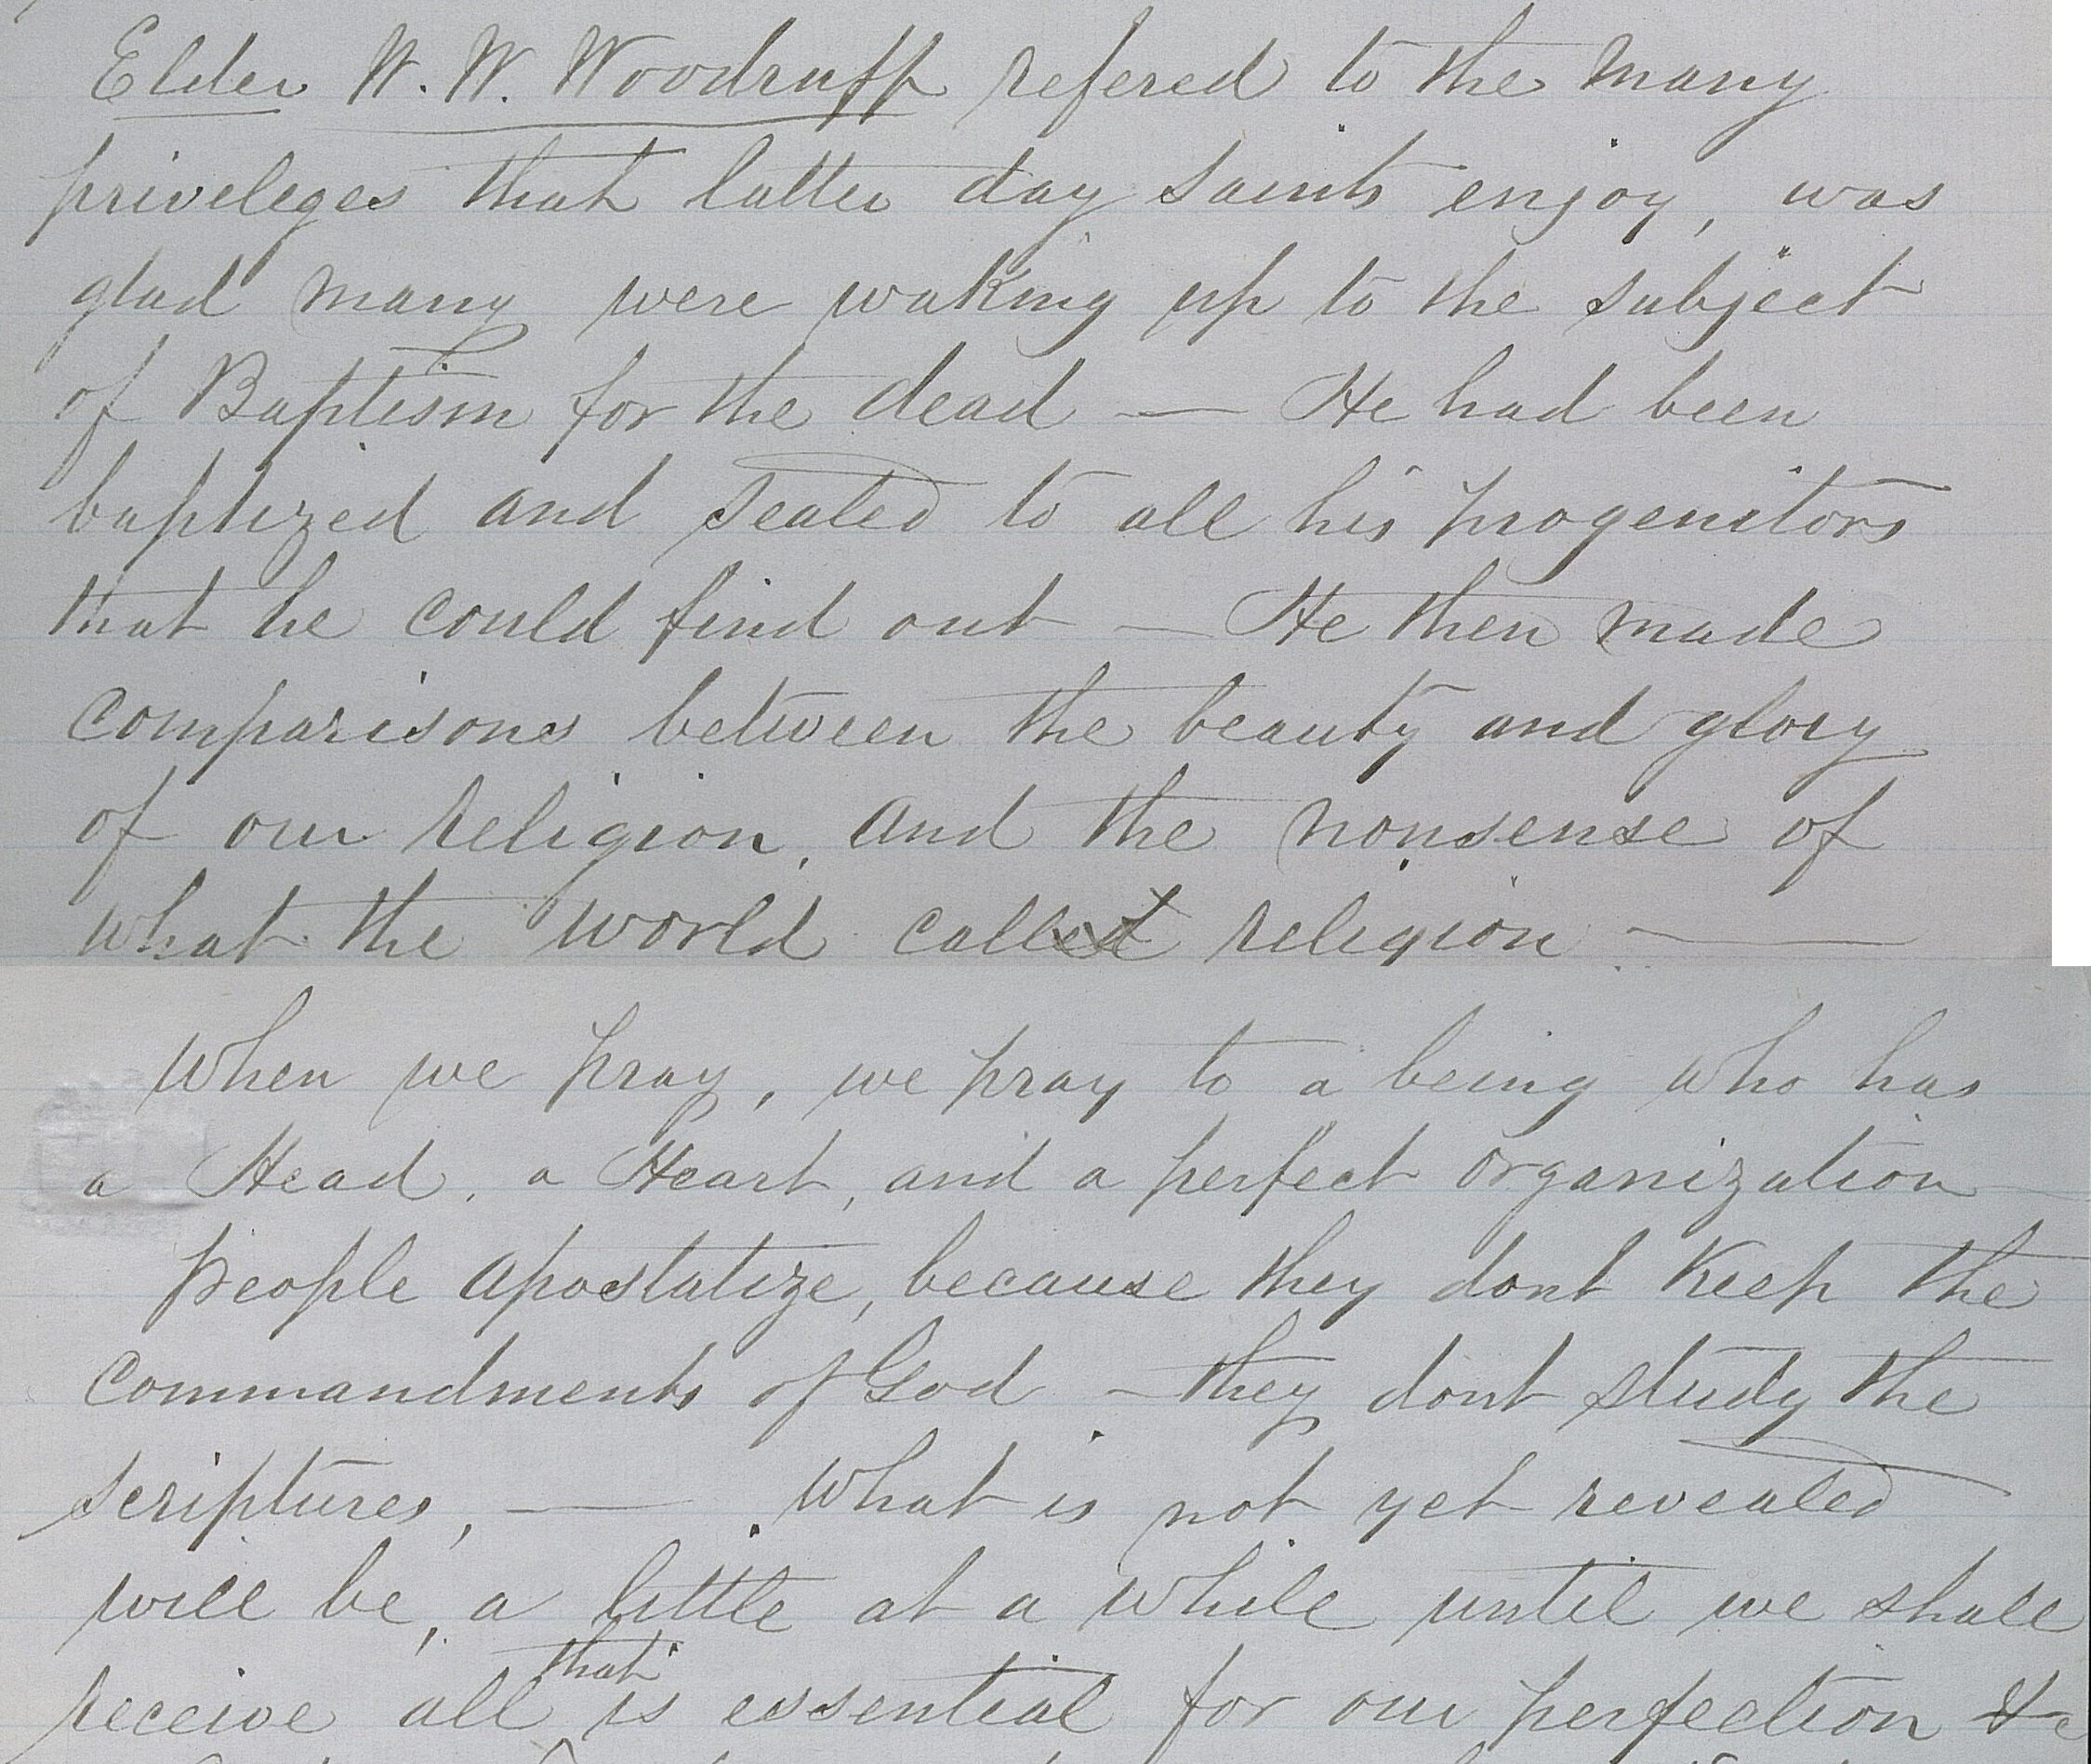 Elder W. W. Woodruff refered to the many
priveleges that latter day saints enjoy, was
glad many were waking up to the subject
of Baptism for the dead — He had been
baptized and sealed to all his progenitors
that he could find out — He then made
comparisons between the beauty and glory
of our religion, and the nonsense of
what the world called religion —
when we pray, we pray to a being who has
a Head, a Heart, and a perfect organization
People apostatize, because they dont keep the
commandments of God — they dont study the
scriptures, — What is not yet revealed
will be, a little at a while until we shall
that
receive all is essential for our perfection &c